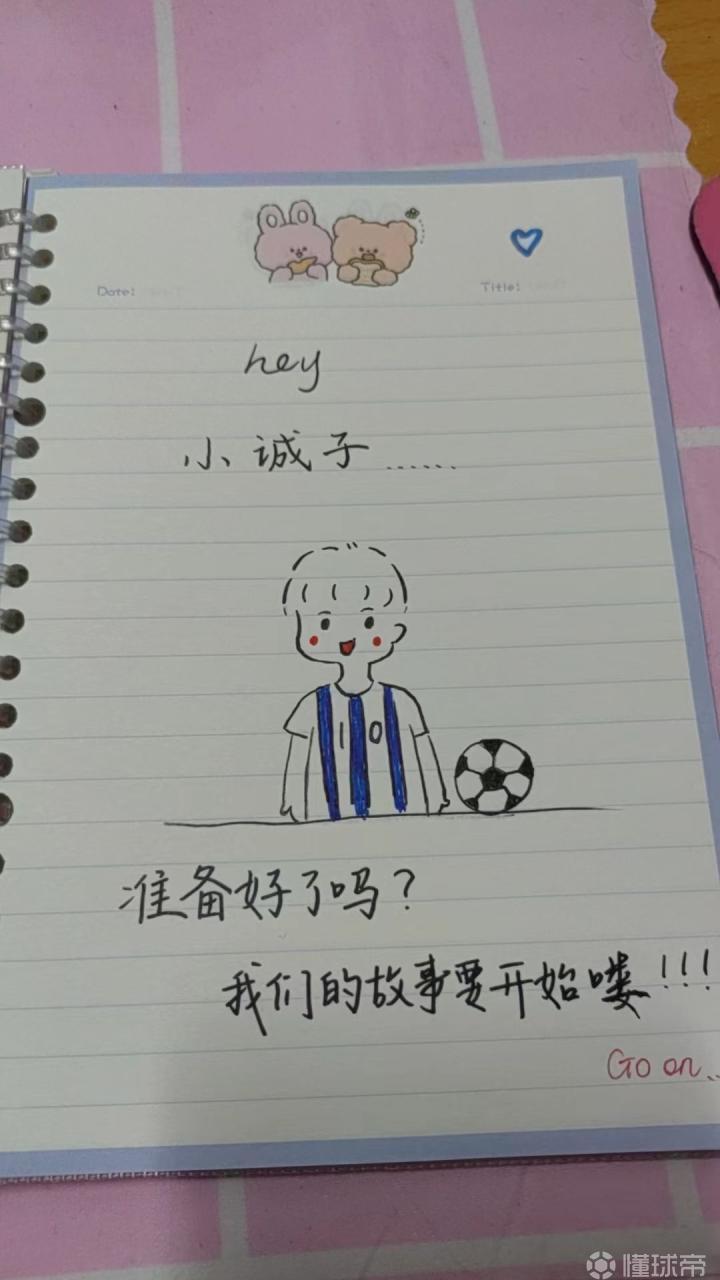 Date:
Title:
hey
小诚子......
10
准备好了吗？
我们的故事要开始喽!!!
Go on..
懂球帝